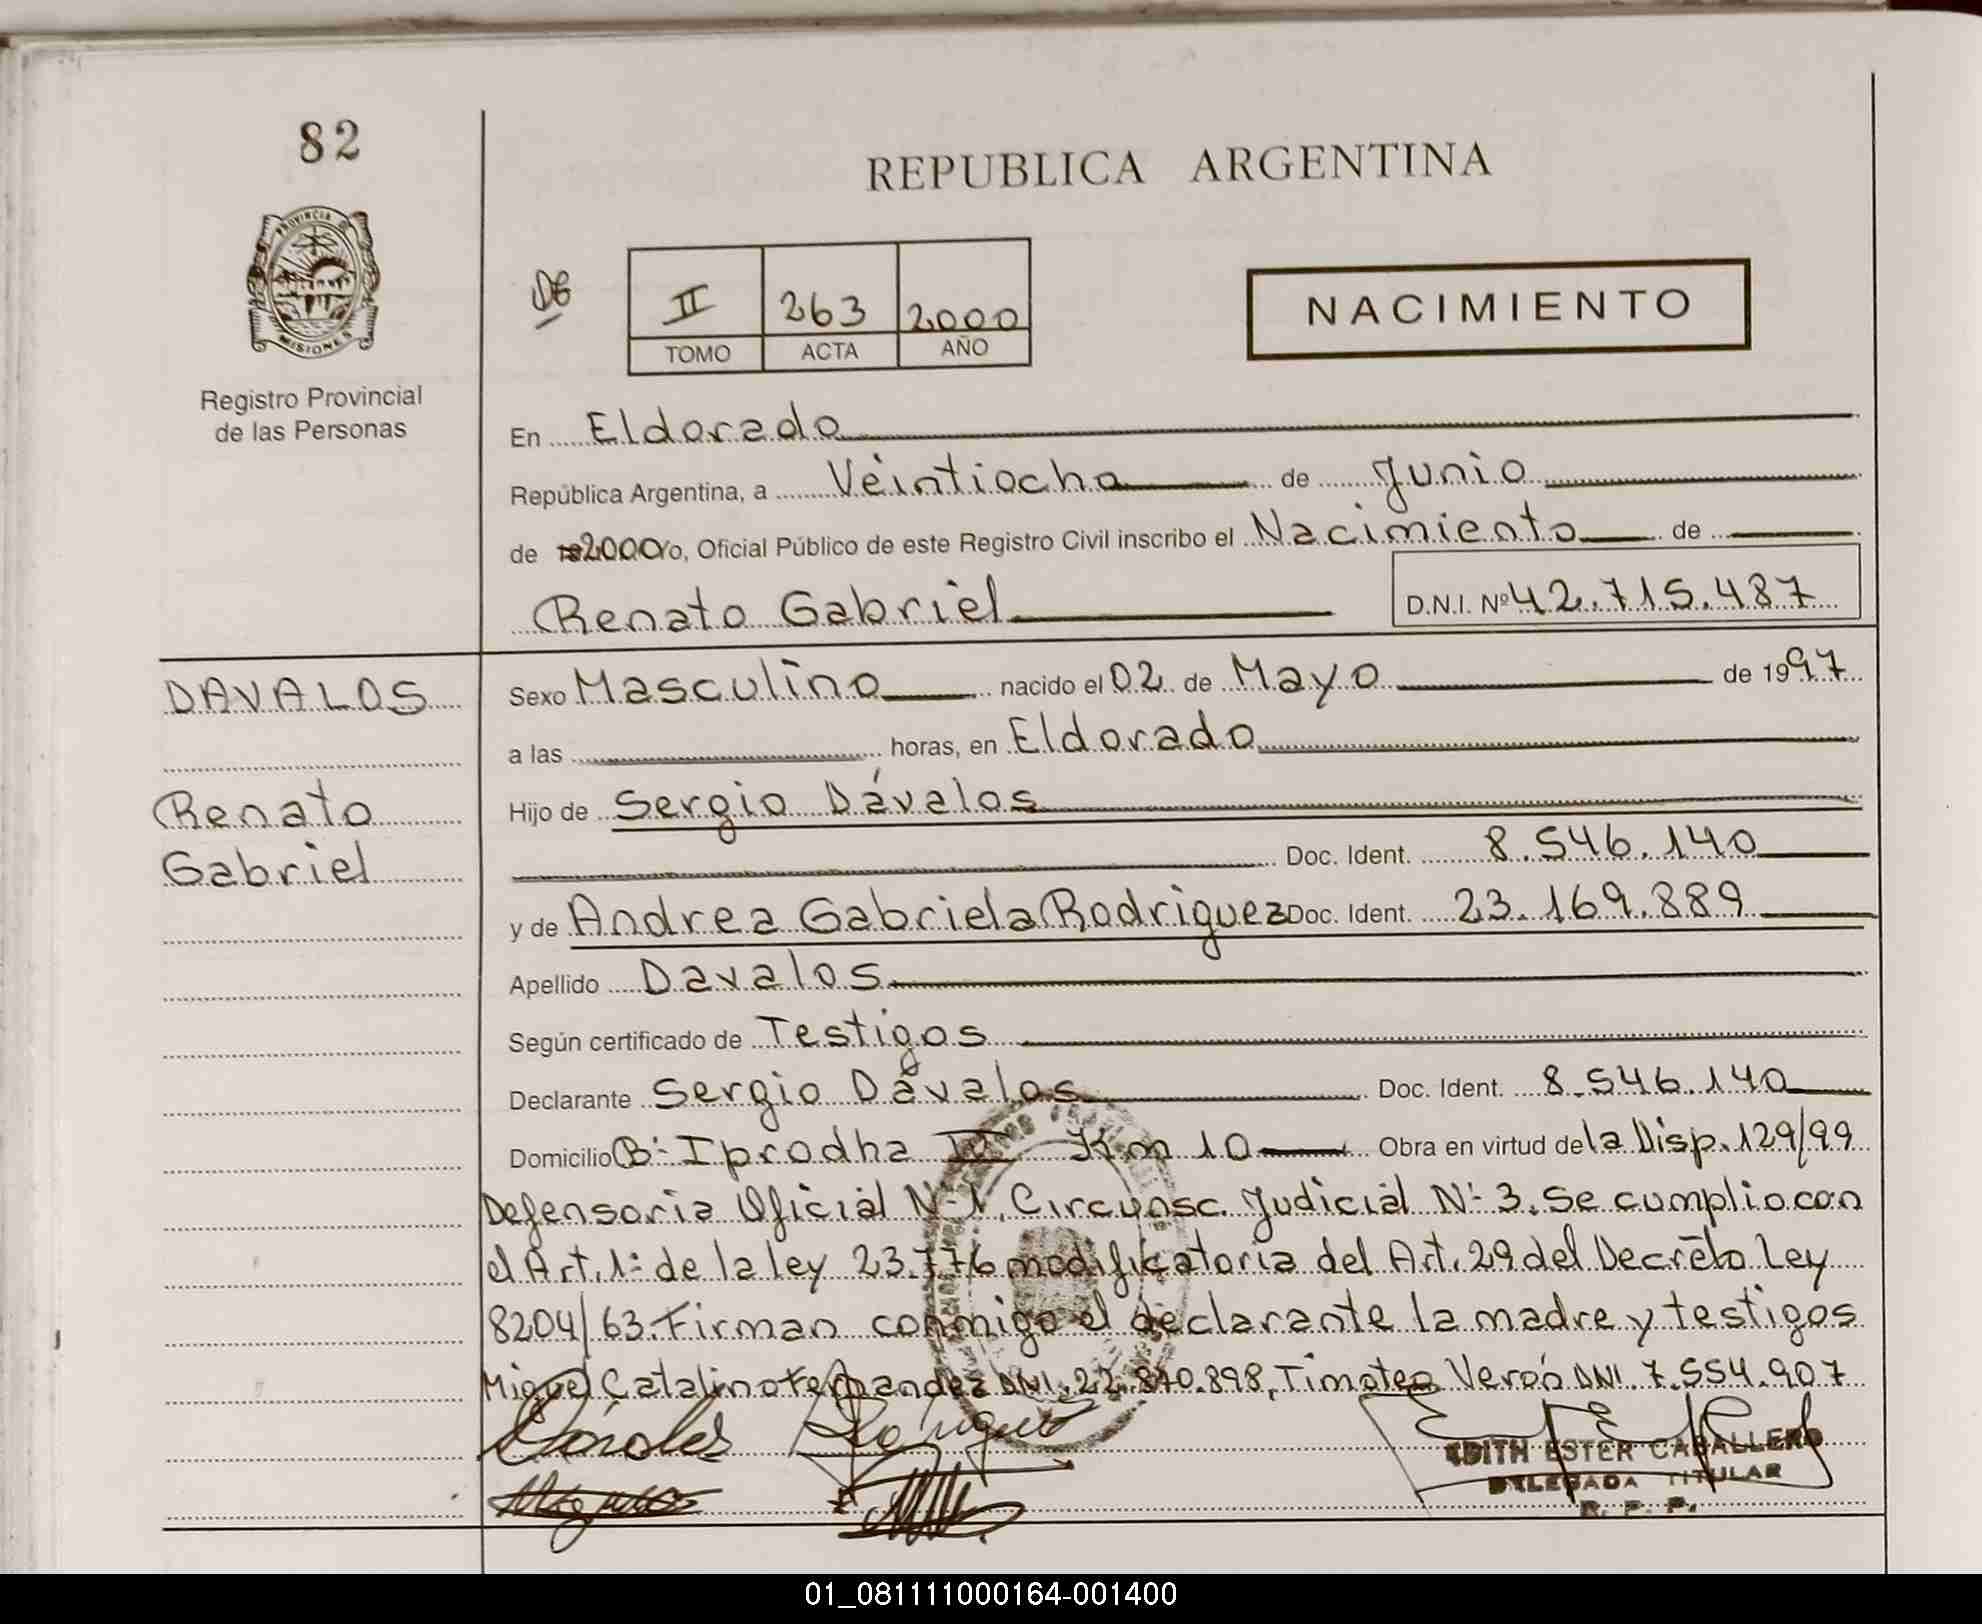 82
REPUBLICA ARGENTINA
PROVINCIA DE
MISIONES
Registro Provincial
de las Personas
II 263 2000
TOMO ACTA AÑO
NACIMIENTO
En Eldorado
República Argentina, a Veintiocho de Junio
de 2000 yo, Oficial Público de este Registro Civil inscribo el Nacimiento de
Renato Gabriel D.N.I. Nº 42.715.487
DAVALOS
Renato
Gabriel
Sexo Masculino nacido el 02 de Mayo de 1997
a las horas, en Eldorado
Hijo de Sergio Dávalos
Doc. Ident. 8.546.140
y de Andrea Gabriela Rodriguez Doc. Ident. 23.169.889
Apellido Davalos
Según certificado de Testigos
Declarante Sergio Dávalos Doc. Ident. 8.546.140
Domicilio B: Iprodha Km 10 Obra en virtud de la Disp. 129/99
Defensoria Oficial N: 1, Circunsc. Judicial N: 3. Se cumplio con
el Art. 1: de la ley 23.776 modificatoria del Art. 29 del Decreto Ley
8204/63. Firman conmigo el declarante la madre y testigos
Miguel Catalino Fernandez DNI. 22.870.898, Timoteo Verón DNI. 7.554.907
Dávalos Rodriguez
EDITH ESTER CABALLERO
DELEGADA TITULAR
R. P. P.
01_081111000164-001400